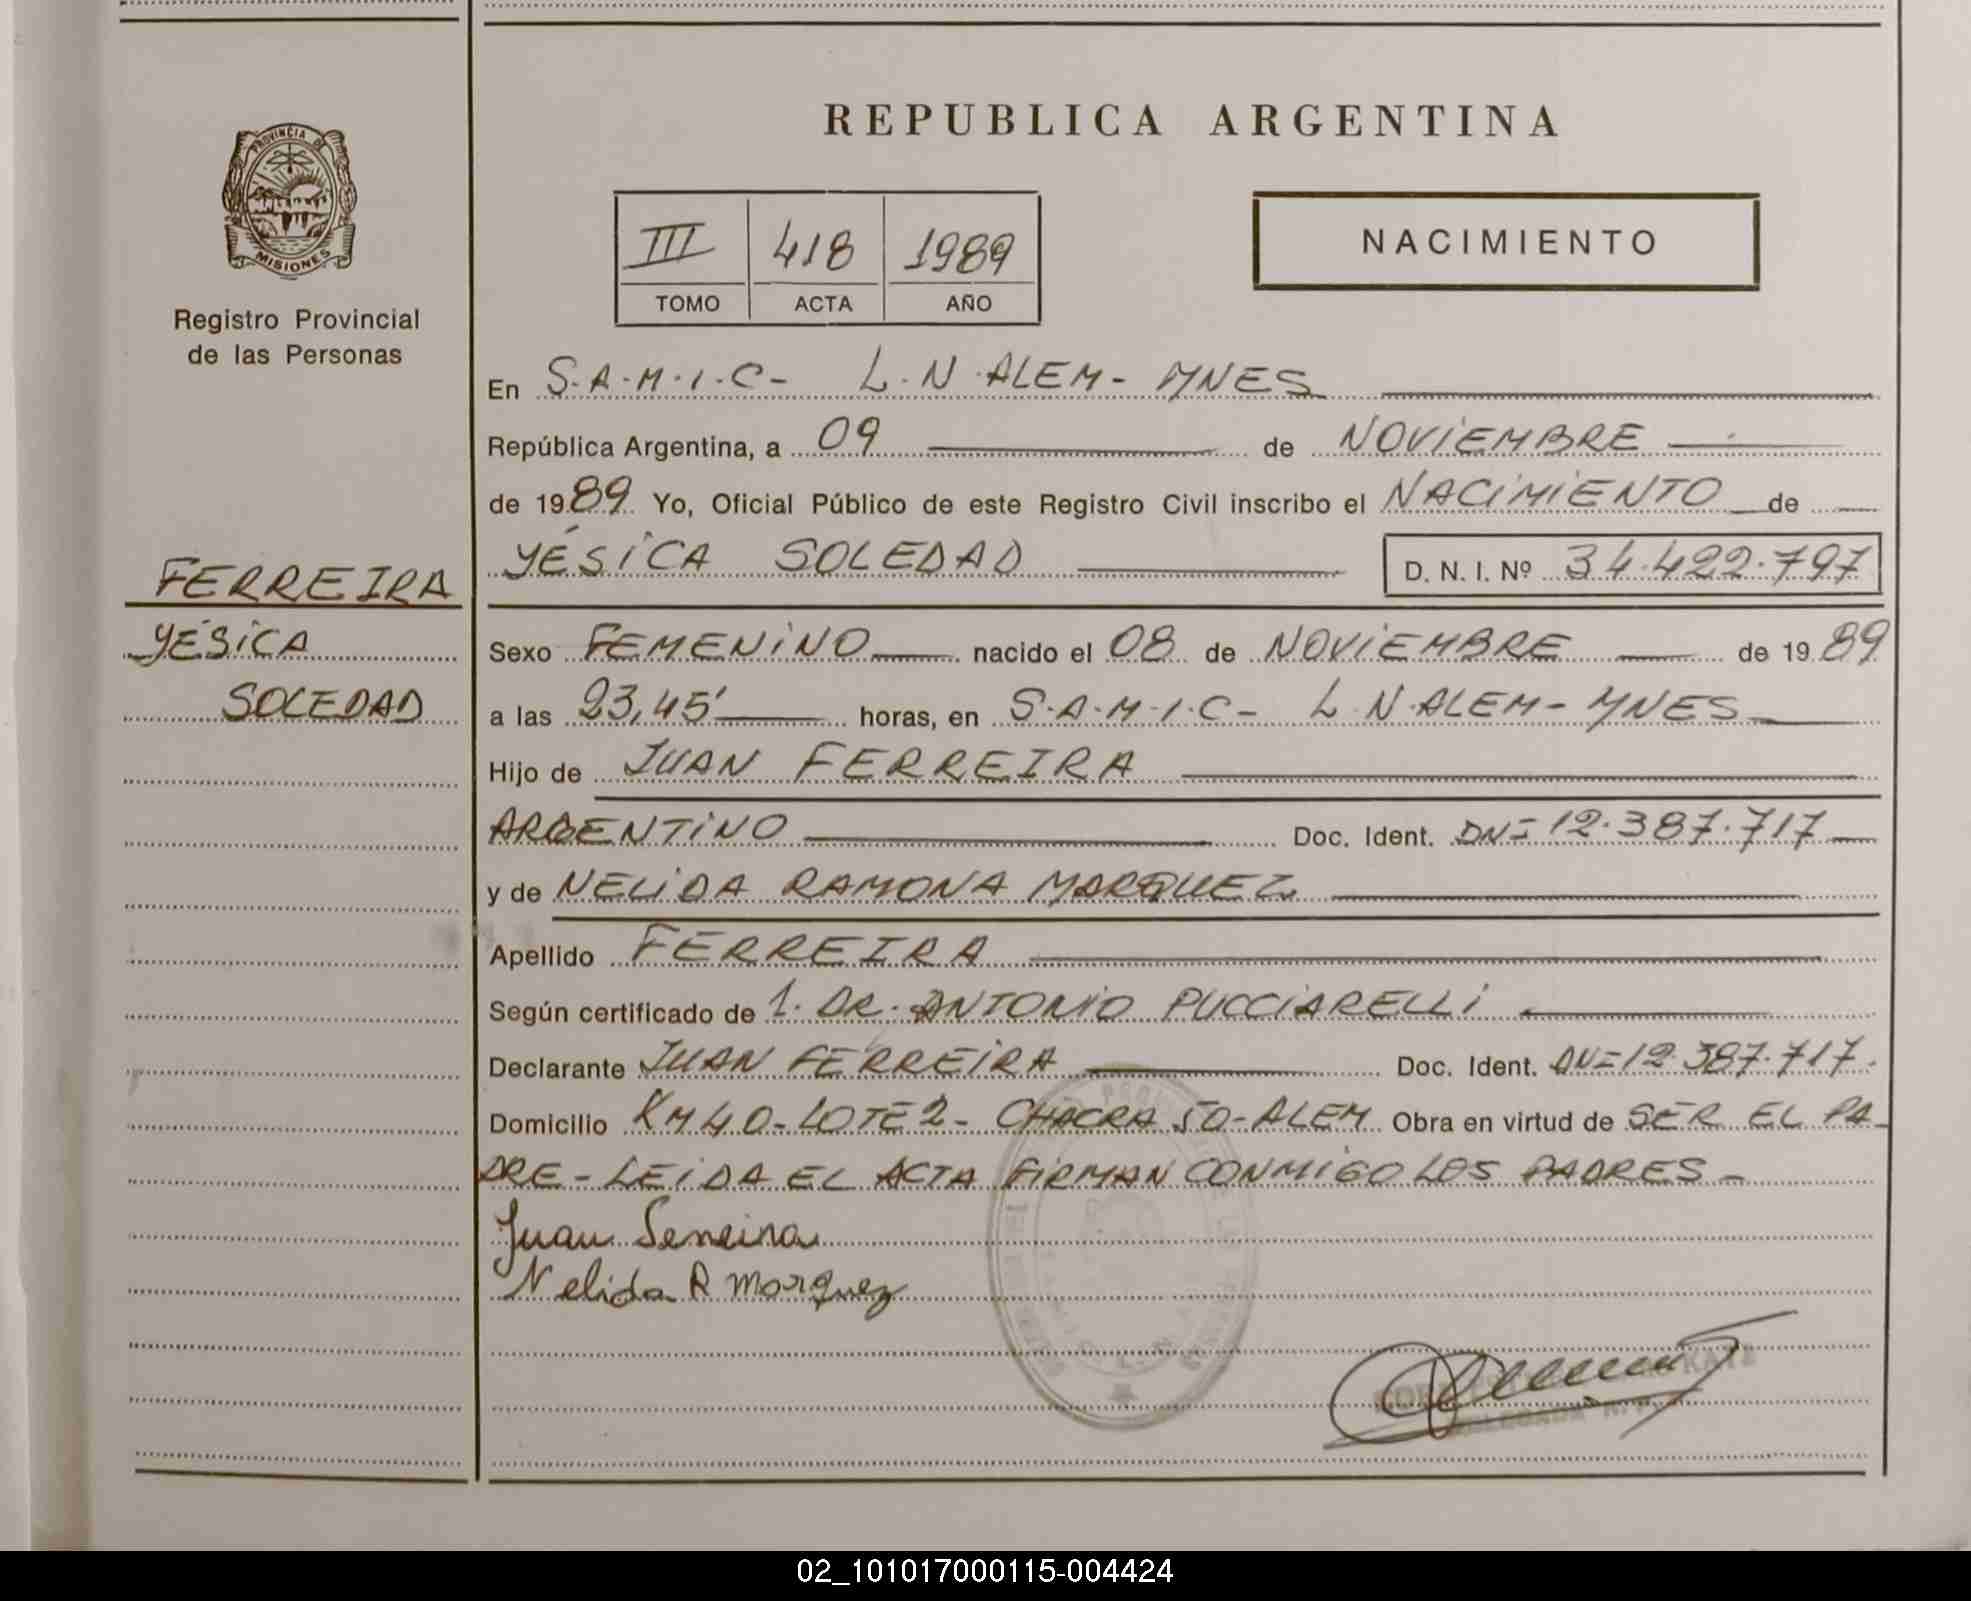 REPUBLICA ARGENTINA
PROVINCIA DE
MISIONES
Registro Provincial
de las Personas
III 418 1989
TOMO ACTA AÑO
NACIMIENTO
En S.A.M.I.C- L.N.ALEM- MNES
República Argentina, a 09 de NOVIEMBRE
de 1989 Yo, Oficial Público de este Registro Civil inscribo el NACIMIENTO de
YÉSICA SOLEDAD D. N. I. Nº 34.422.797
FERREIRA
YÉSICA
SOLEDAD
Sexo FEMENINO nacido el 08 de NOVIEMBRE de 1989
a las 23,45' horas, en S.A.M.I.C- L.N.ALEM- MNES
Hijo de JUAN FERREIRA
ARGENTINO Doc. Ident. DNI 12.387.717
y de NELIDA RAMONA MARQUEZ
Apellido FERREIRA
Según certificado de 1. DR. ANTONIO PUCCIARELLI
Declarante JUAN FERREIRA Doc. Ident. DNI 12.387.717.
Domicilio KM 40- LOTE 2- CHACRA 50- ALEM Obra en virtud de SER EL PA-
DRE- LEIDA EL ACTA FIRMAN CONMIGO LOS PADRES-
Juan Ferreira
Nelida R Marquez
02_101017000115-004424